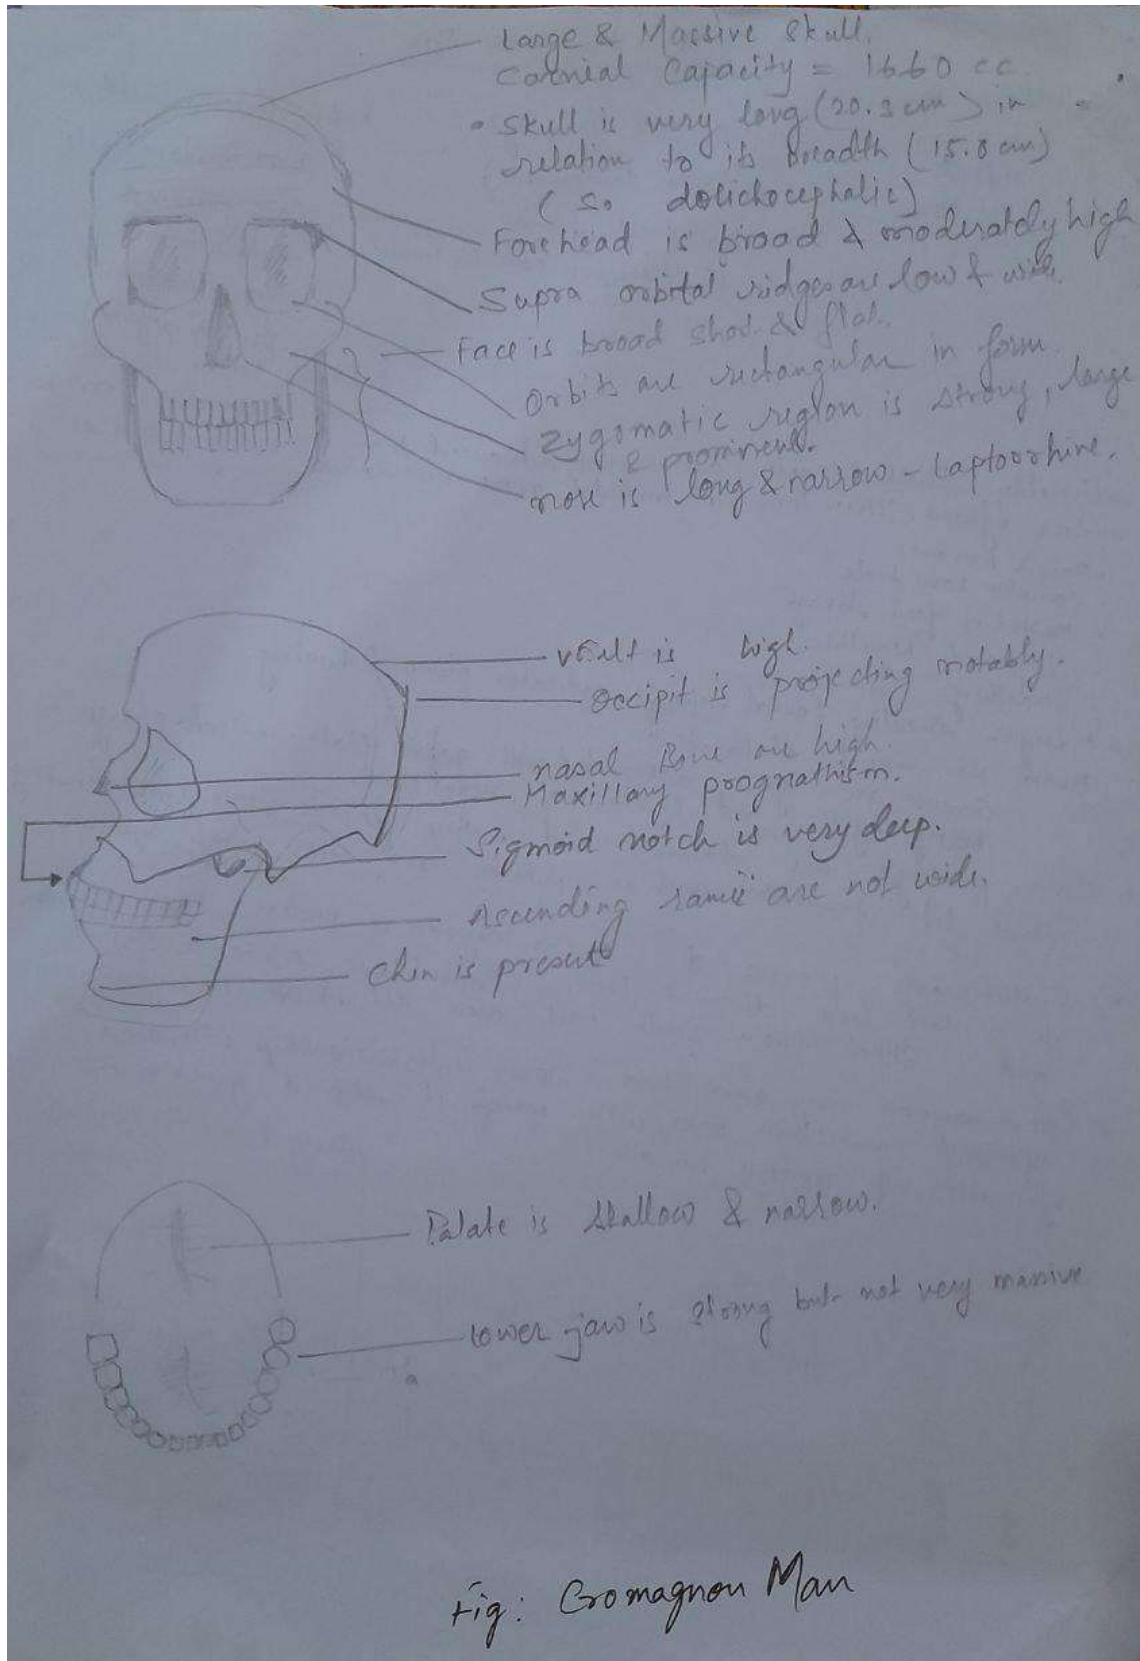 Large & Massive Skull.
Cornial Capacity = 1660 cc.
• Skull is very long (20.3 cm) in
relation to its breadth (15.0 cm)
(so dolichocephalic)
Forehead is broad & moderately high
Supra orbital ridges are low & wide.
Face is broad short & flat.
Orbits are rectangular in form.
Zygomatic region is strong, large
& prominent.
nose is long & narrow - Laptoorhine.
vault is high.
Occipit is projecting notably.
nasal Bone are high.
Maxillary prognathism.
Sigmoid notch is very deep.
Ascending ramii are not wide.
Chin is present
Palate is shallow & narrow.
lower jaw is strong but not very massive
Fig: Cromagnon Man